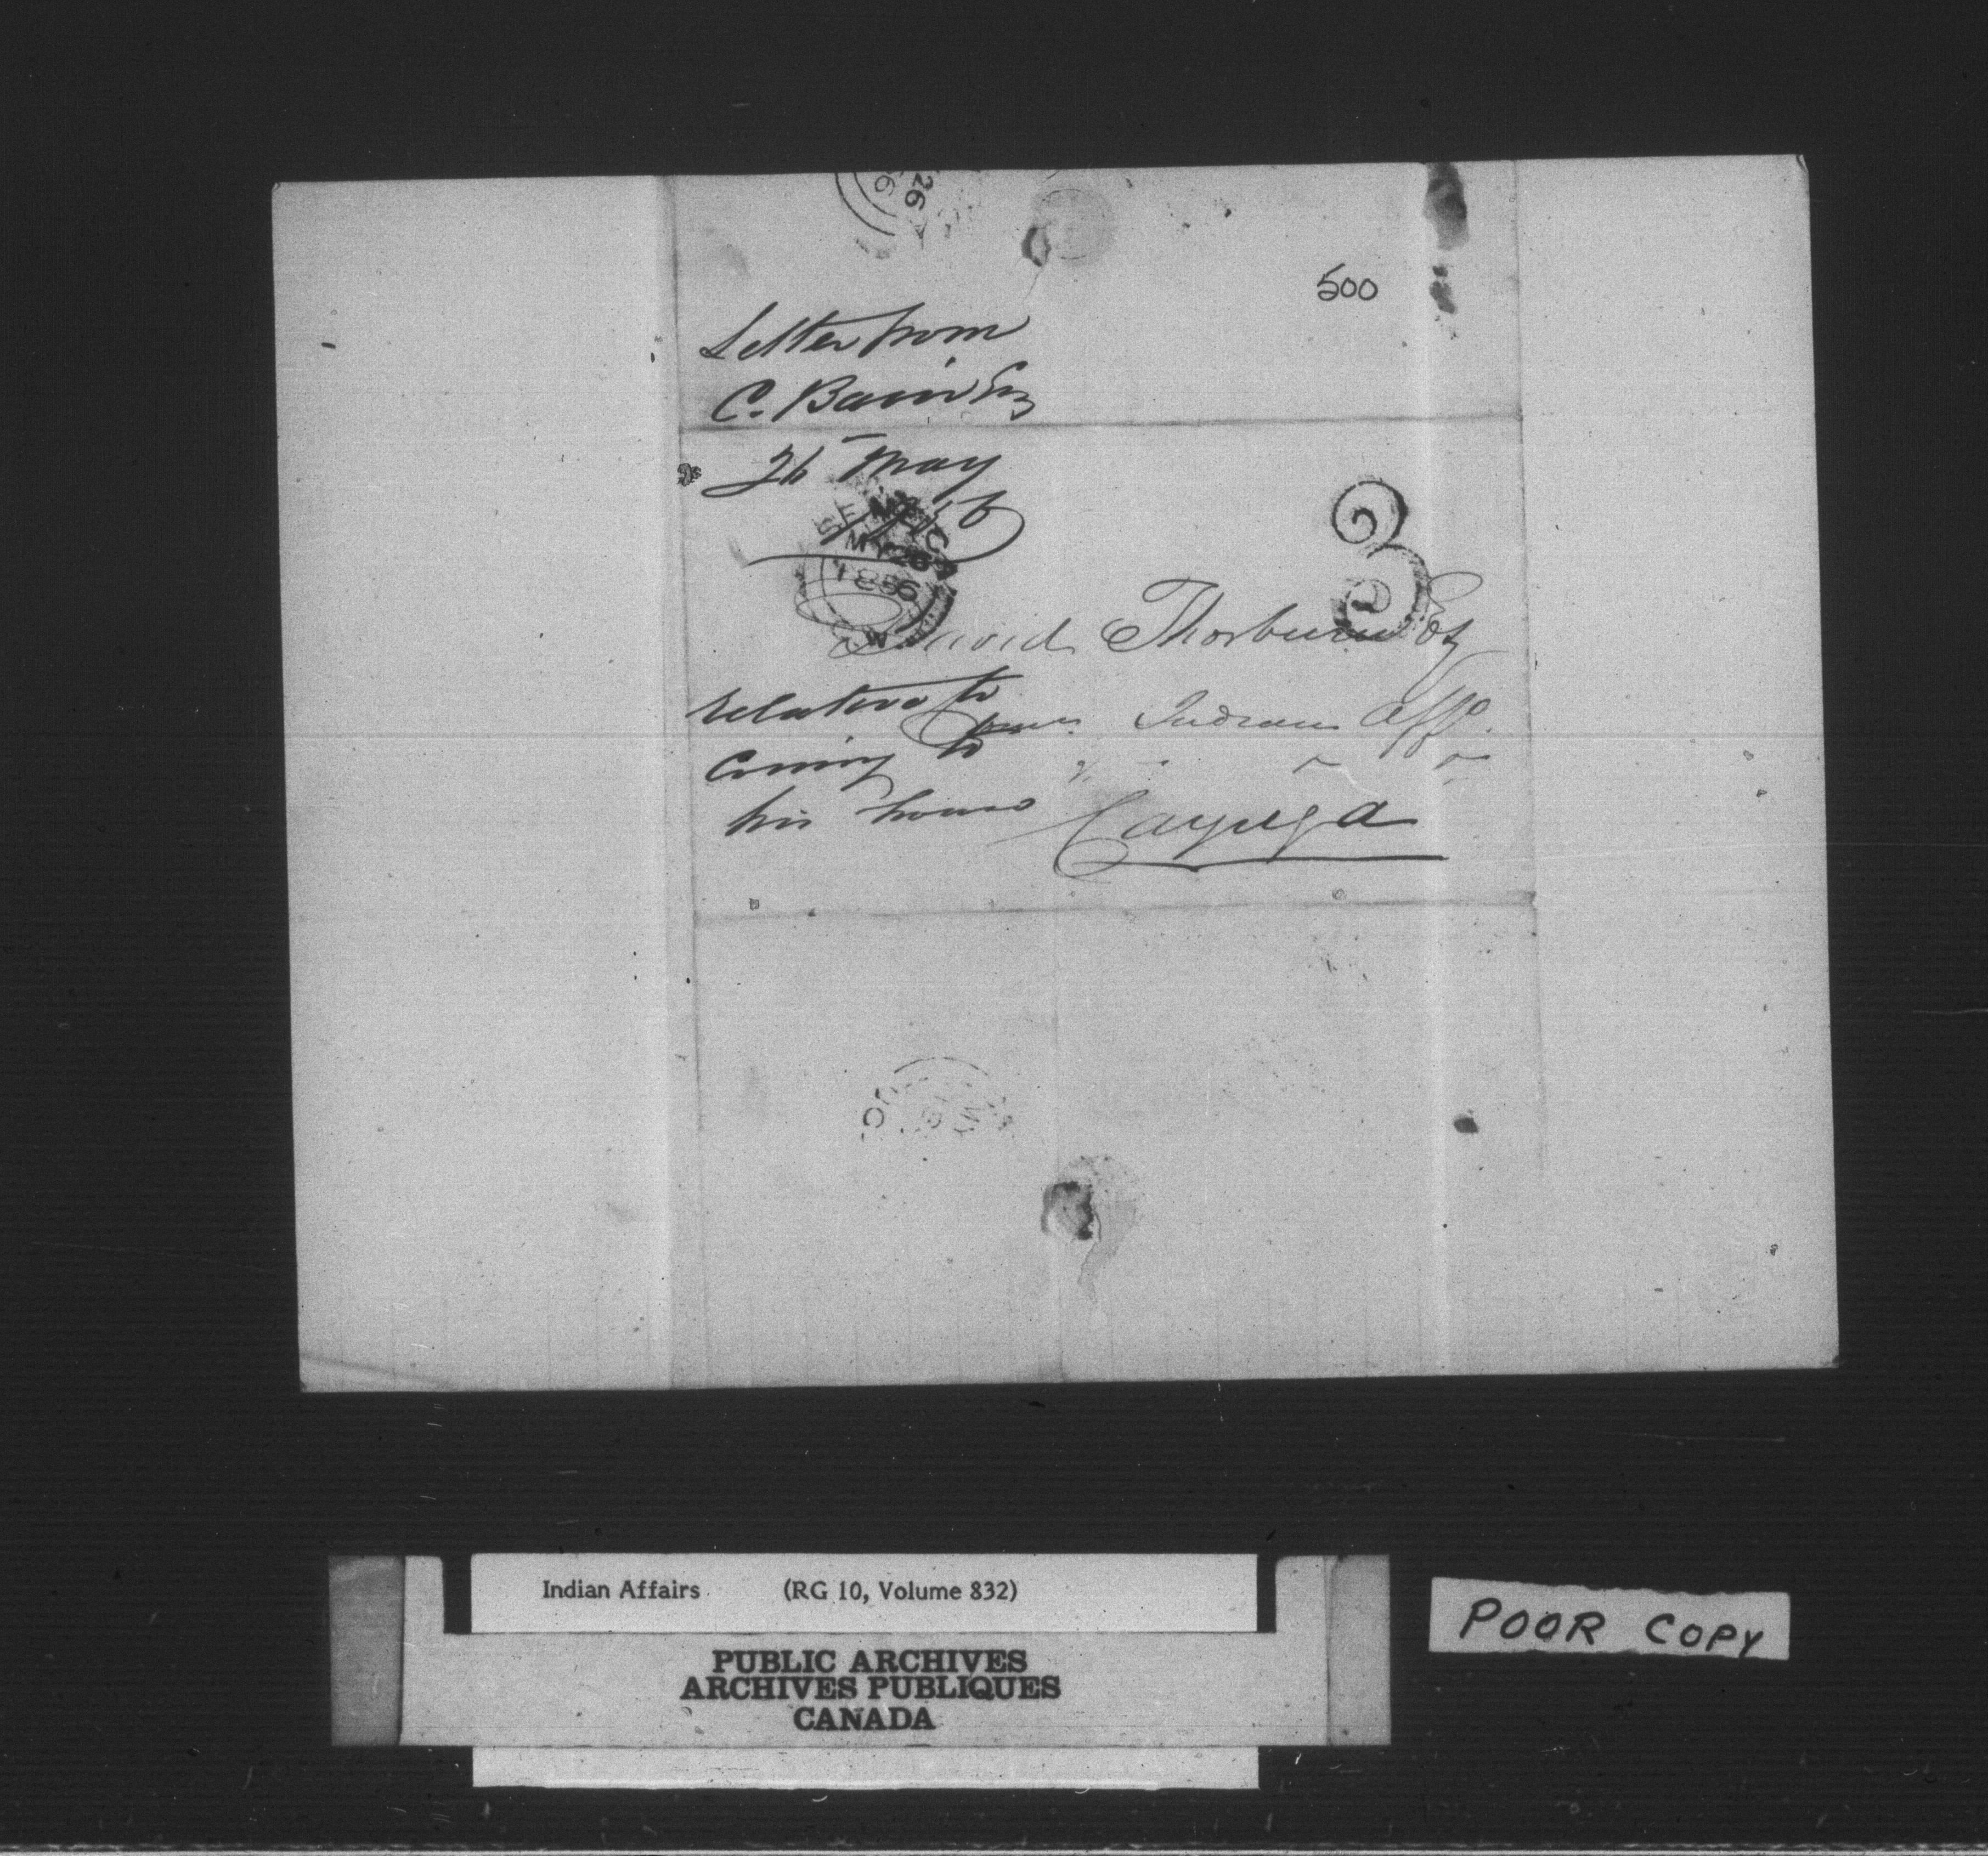 26
500
Letter from
C. Bain Esq
26 May
1856
MY 26
1856
3
David Thorburn Esq
Indian Affs
relative to
coming to
his house
Cayuga
Indian Affairs (RG 10, Volume 832)
PUBLIC ARCHIVES
ARCHIVES PUBLIQUES
CANADA
POOR COPY